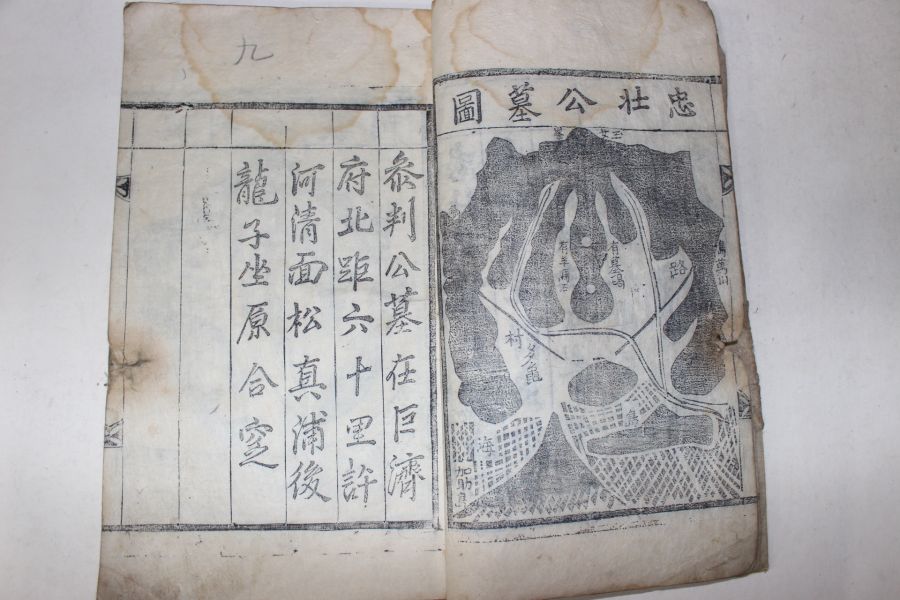 忠壯公墓圖
路
村
海
島
九
叅判公墓在巨濟
府北距六十里許
河清面松真浦後
龍子坐原合窆